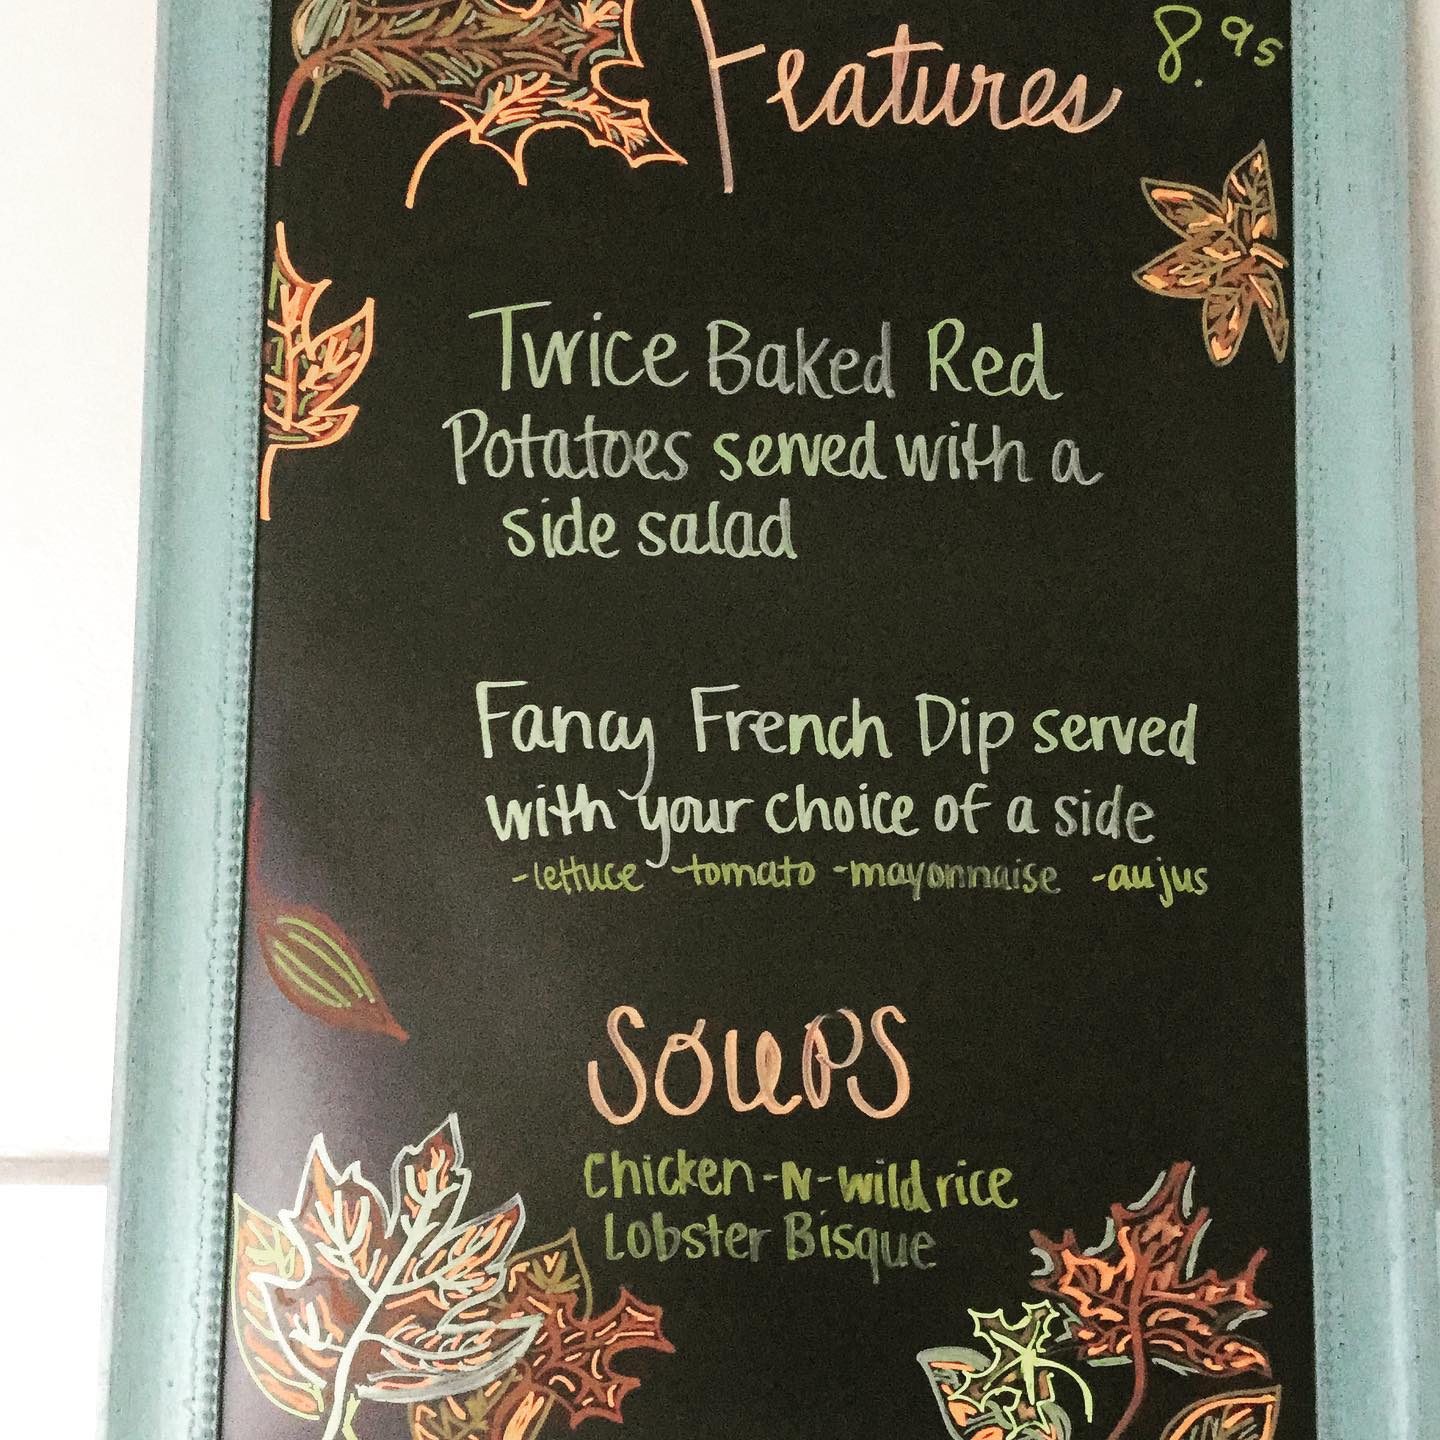 Features 8.95
Twice Baked Red
Potatoes served with a
side salad
Fancy French Dip served
with your choice of a side
-lettuce -tomato -mayonnaise -aujus
SOUPS
Chicken-N-wild rice
Lobster Bisque